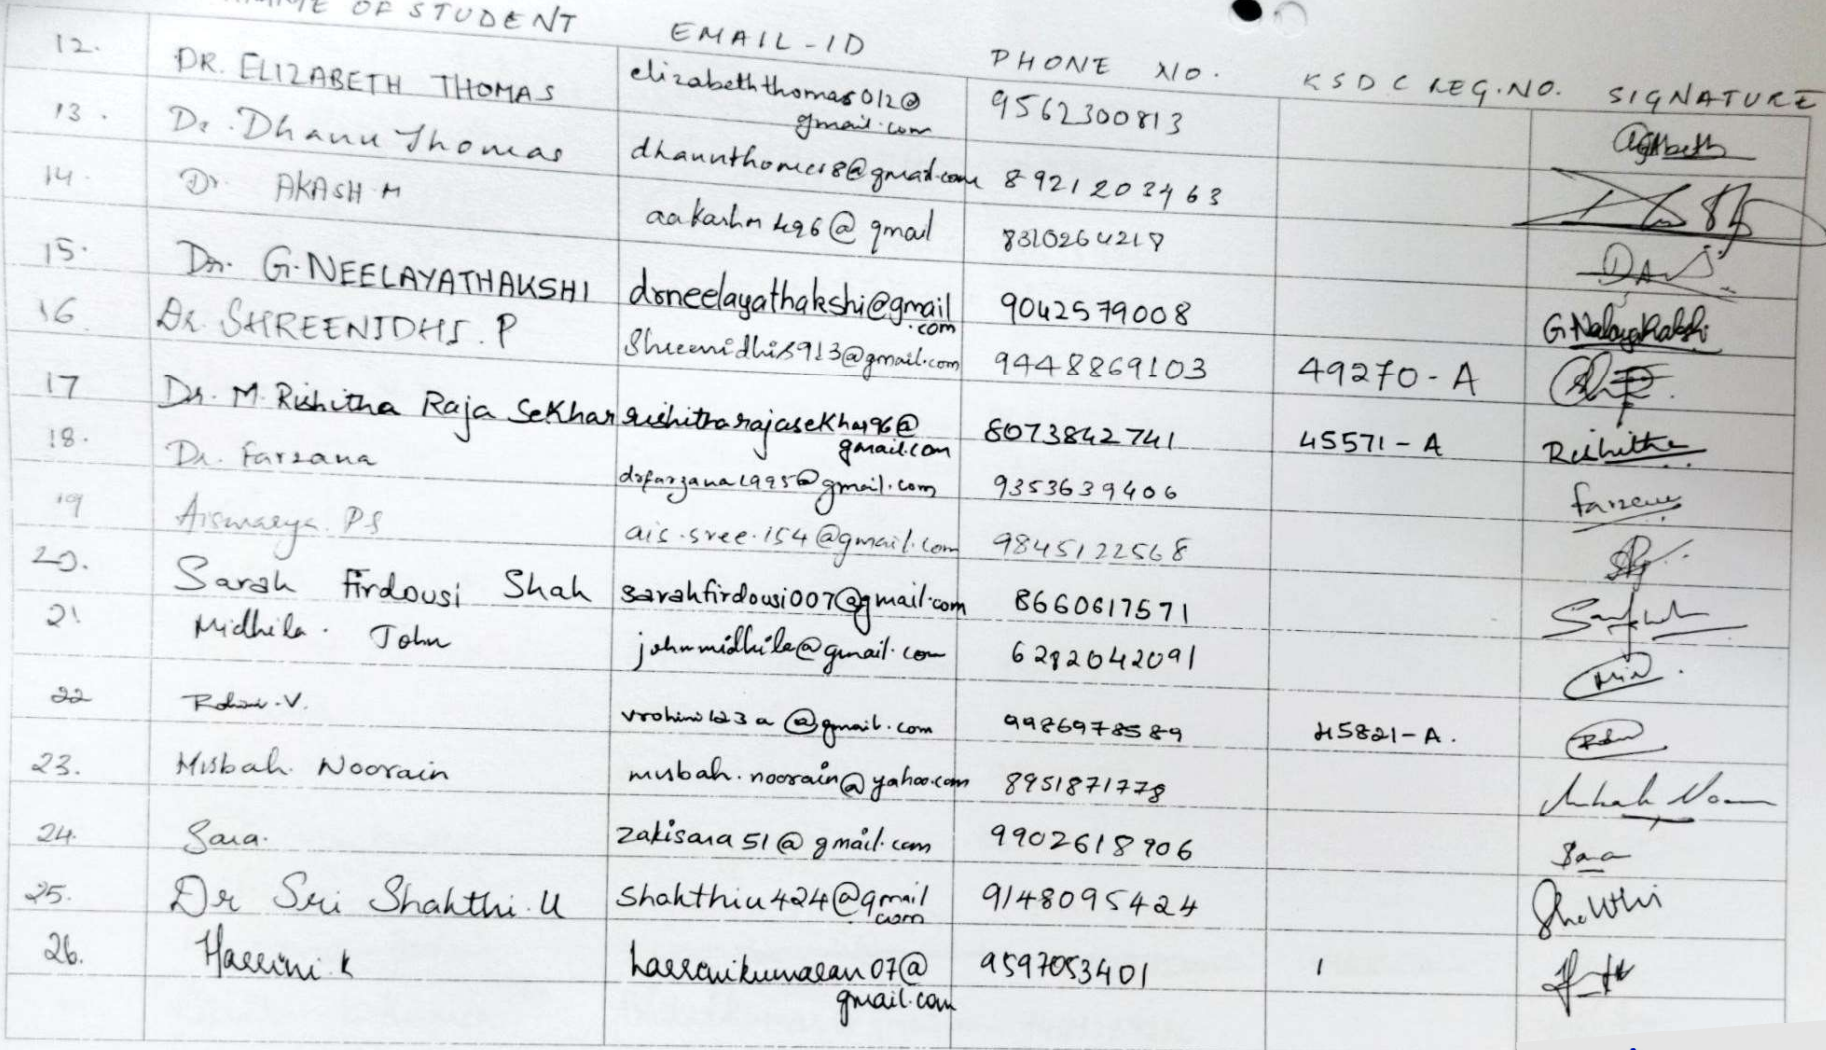 NAME OF STUDENT EMAIL-ID PHONE NO. KSDC REG.NO. SIGNATURE
12. DR. ELIZABETH THOMAS elizabeththomas012@ 9562300813
gmail.com
13. Dr. Dhanu Thomas dhanuthomas8@gmail.com 8921203463
14. Dr. AKASH M aakashm496@gmail 8310264218
15. Dr. G.NEELAYATHAKSHI drneelayathakshi@gmail 9042579008
.com
16 Dr. SHREENIDHI. P Shreenidhis913@gmail.com 9448869103 49270-A
17 Dr. M. Rishitha Raja Sekhar rishitharajasekhar96@ 8073842741 45571-A Rishitha
gmail.com
18. Dr. Farzana drfarzana1995@gmail.com 9353639406 farzana
19 Aiswarya. P S ais.sree.154@gmail.com 9845122568
20. Sarah Firdousi Shah sarahfirdousi007@gmail.com 8660617571
21 Midhila. John johnmidhila@gmail.com 6282042091
22 Rohini.V. vrohini123a@gmail.com 9986978589 45821-A.
23. Misbah. Noorain misbah.noorain@yahoo.com 8951871778
24. Sara. zakisara51@gmail.com 9902618906 Sara
25. Dr Sri Shakthi.U Shakthiu424@gmail 9148095424 Shakthi
.com
26. Harrini.K harrinikumaran07@ 9597053401
gmail.com